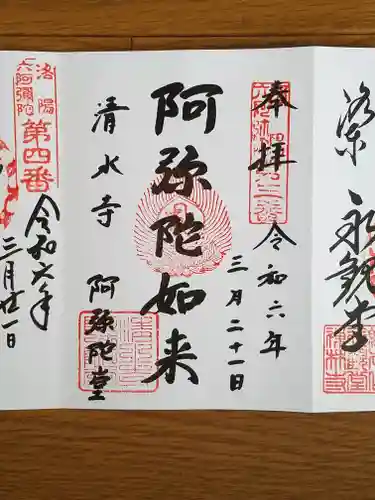 永観堂
奉拝
令和六年
三月二十一日
阿弥陀如来
清水寺 阿弥陀堂
洛陽
六阿彌陀
第四番
令和六年
三月廿一日